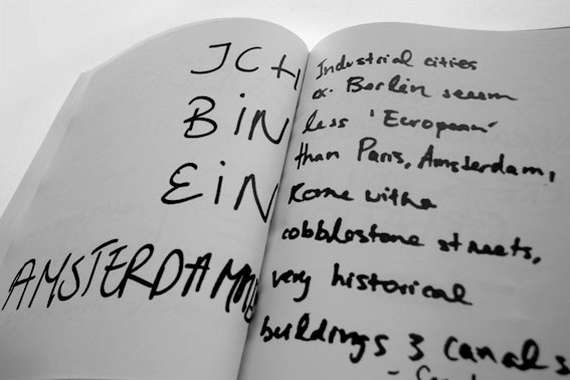 ICH
BIN
EIN
Industrial cities
ex. Berlin seem
less 'European'
than Paris, Amsterdam,
Rome with
cobblestone streets,
very historical
buildings & canals